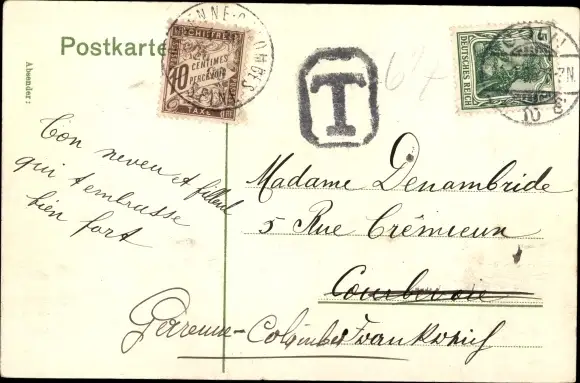 Postkarte
Absender:
CHIFFRE
10 CENTIMES
À PERCEVOIR
TAXE
T
67
DEUTSCHES REICH
Ton neveu et filleul
qui t'embrasse
bien fort
Madame Denambride
5 Rue Crémieux
Courbevoie
Garenne-Colombes Frankreich